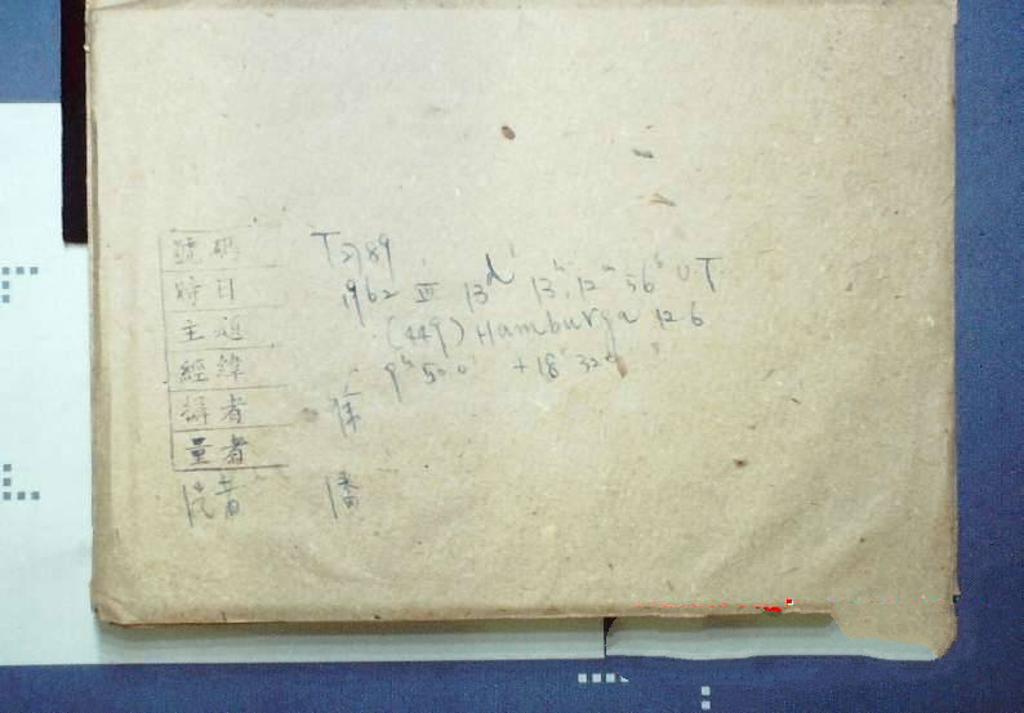 號碼 T2789
時日 1962 III 13d 13h 12m 56s UT
主題 (449) Hamburga 12.6
經緯 9h 50.0 +18° 32'
攝者 徐
量者
潘